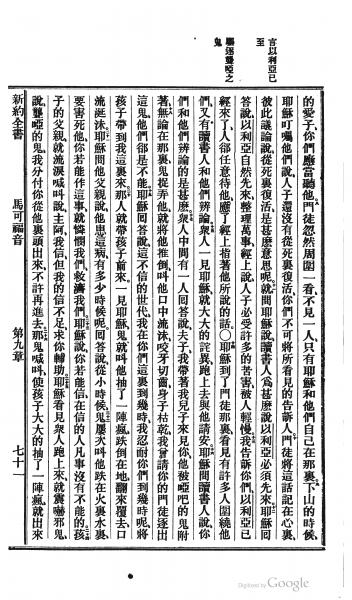 言以利亞已至
驅逐聾啞之鬼
的愛子你們應當聽他門徒忽然周圍一看不見一人只有耶穌和他們自己在那裏下山的時候
耶穌叮囑他們說人子還沒有從死裏復活你們不可將所看見的告訴人門徒將這話記在心裏
彼此議論說從死裏復活是甚麽意思呢就問耶穌說讀書人爲甚麽說以利亞必須先來耶穌回
答說以利亞自然先來整理萬事經上說人子必受許多的苦害被人輕慢我告訴你們以利亞已
經來了人卻任意待他應了經上指著他所說的話〇耶穌到了門徒那裏看見有許多人圍繞他
們又有讀書人和他們辨論衆人一見耶穌就大大的詫異跑上去與他請安耶穌問讀書人說你
們和他們辨論的是甚麽衆人中間有一人回答說夫子我帶著我兒子來見你他被啞吧的鬼附
著無論在那裏鬼捉弄他就將他推倒他口中流沫咬牙切齒身子枯乾我曾請你的門徒逐出
這鬼他們卻是不能耶穌回答說這不信的世代我在你們這裏到幾時我忍耐你們到幾時呢將
孩子帶到我這裏來那人就帶孩子前來一見耶穌鬼就叫他抽了一陣瘋跌倒在地翻來覆去口
流涎沫耶穌問他父親說他患這病有多少時候呢回答說從小時候鬼屢次叫他跌在火裏水裏
要害死他你若能作這事就憐憫我們救濟我們耶穌說你若能信在信的人凡事沒有不能的孩
子的父親就流淚喊叫說主阿我信但我的信不足求你輔助耶穌看見衆人跑上來就罵嚇那鬼
說聾啞的鬼我分付你從他裏頭出來不許再進去那鬼喊叫使孩子大大的抽了一陣瘋就出來
新約全書
馬可福音
第九章
七十一
Digitized by Google